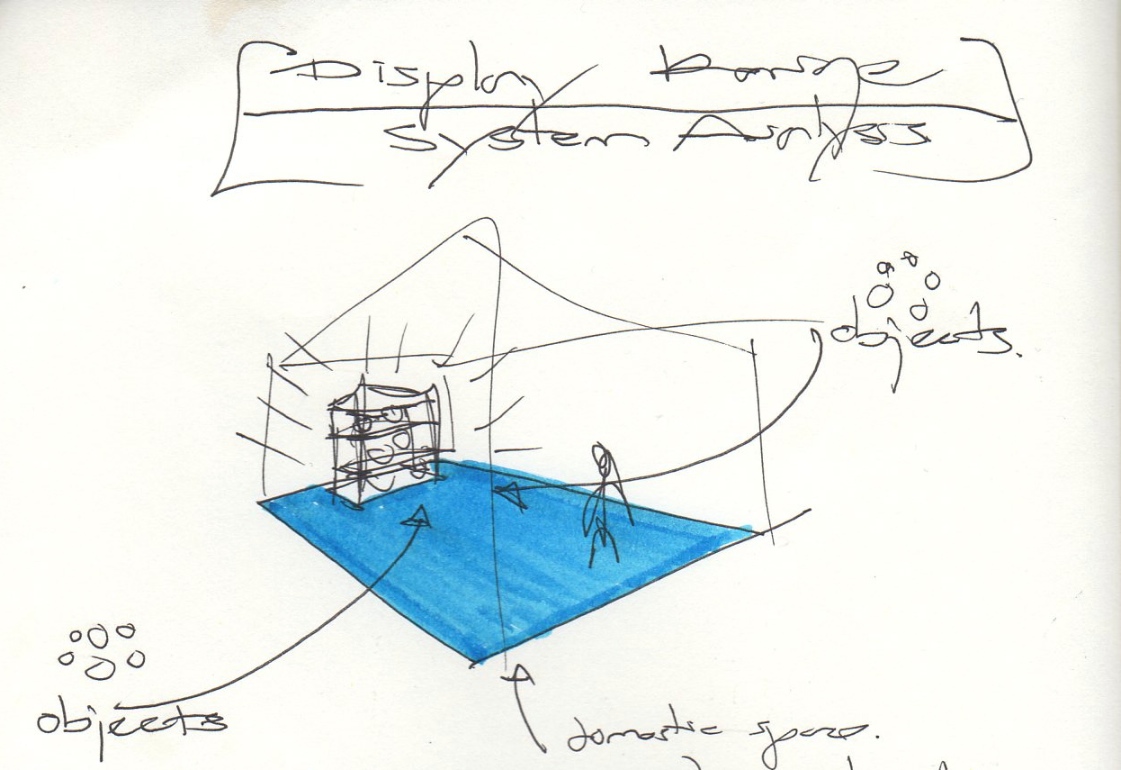 Display Range
System Analyss
objects.
objects
domestic space.